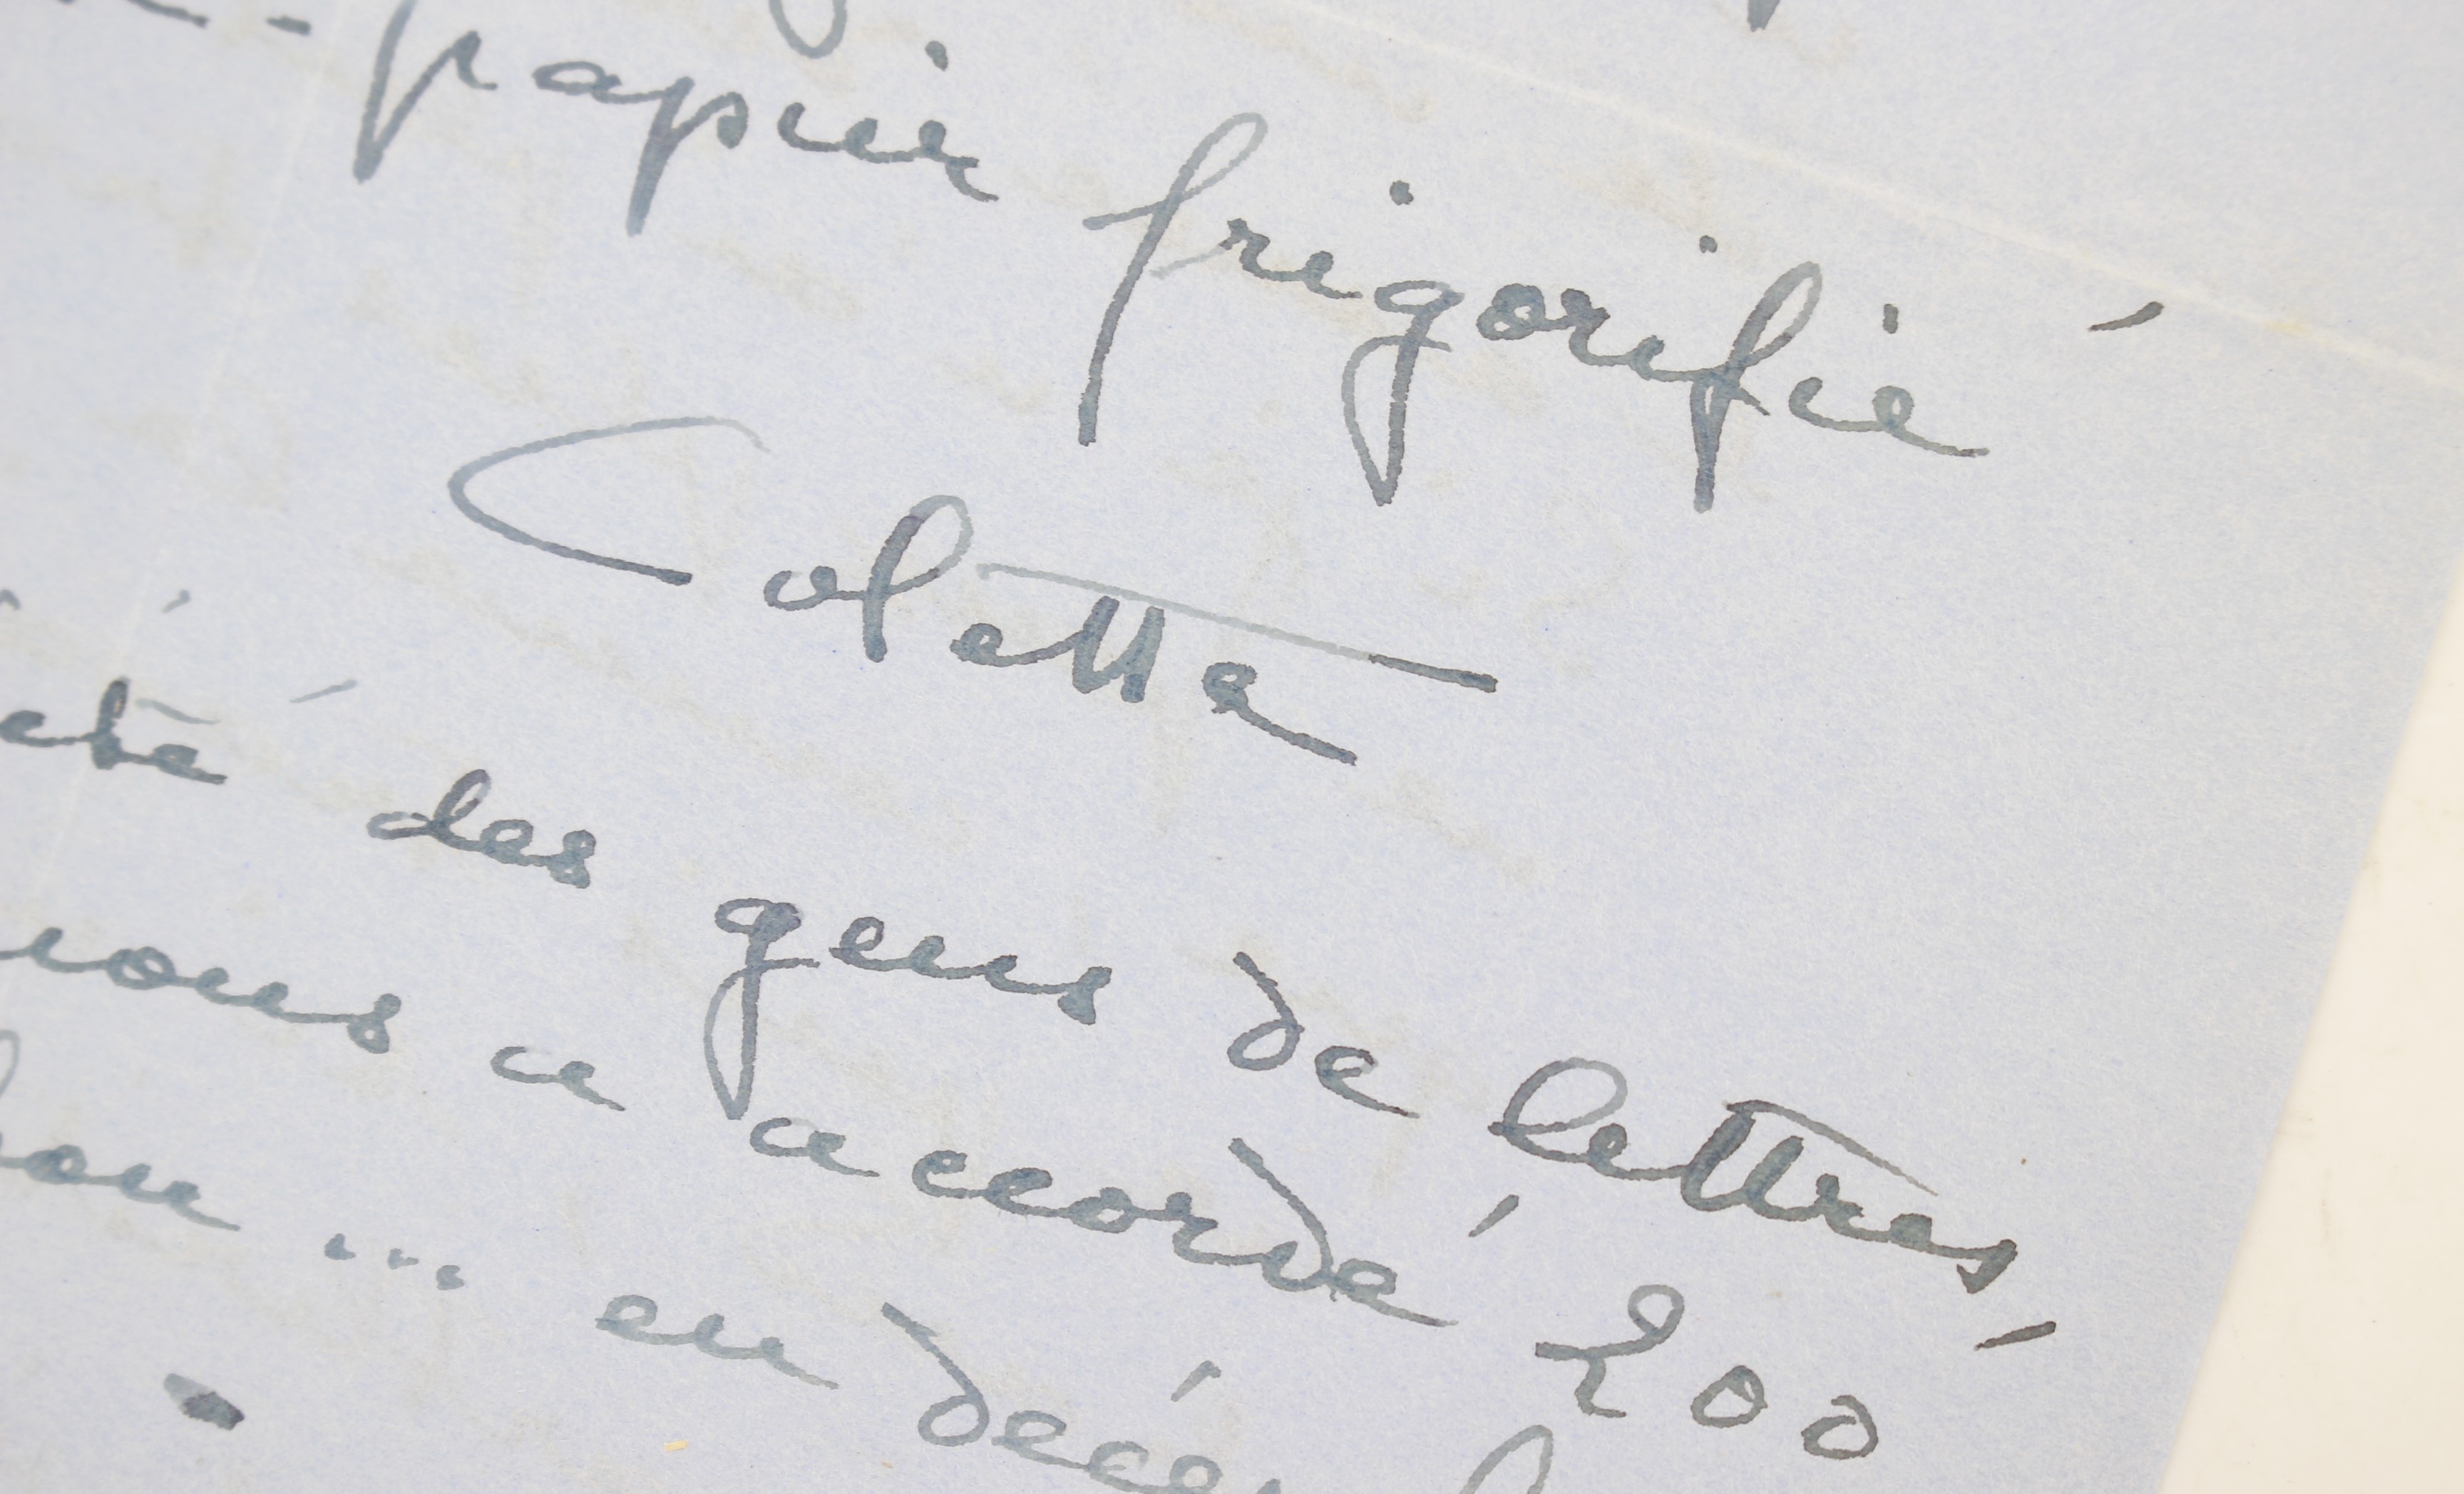 -papier frigorifié
Colette
été des gens de lettres,
nous a accordé 200
... en